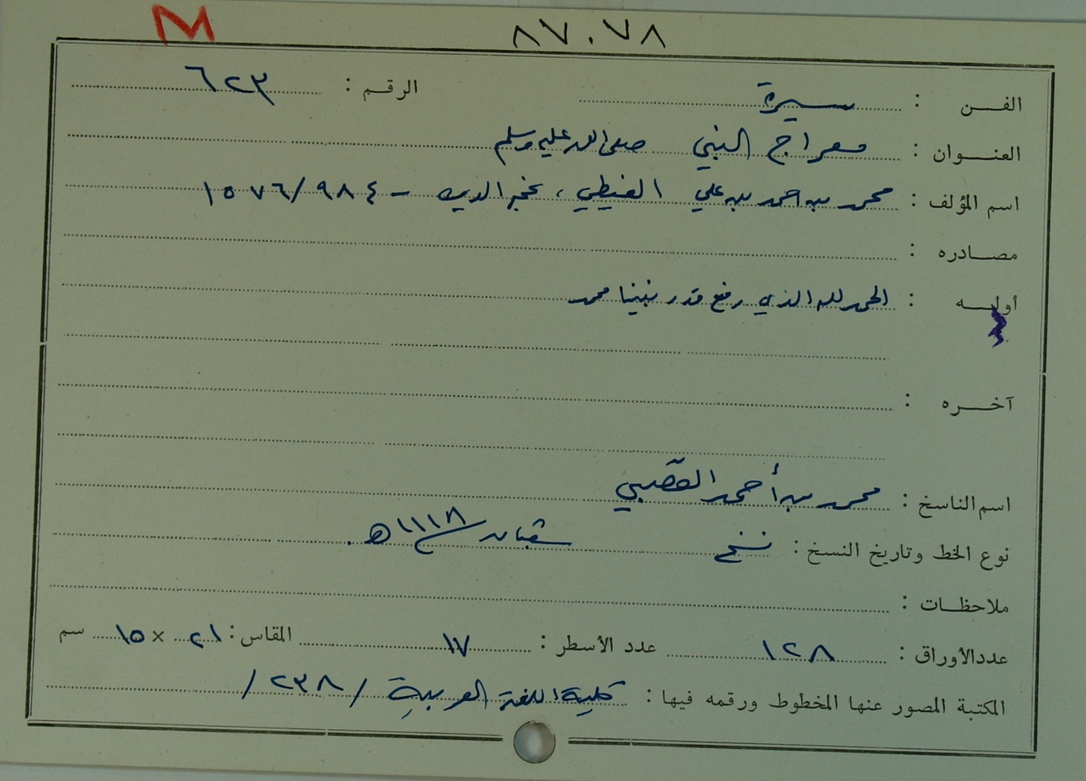 M ٨٧٠٧٨
الفن : سيرة الرقم : ٦٢٣
العنوان : معراج النبي صلى الله عليه وسلم
اسم المؤلف : محمد بن احمد بن علي الغيطي ، نجم الدين - ٩٨٤/١٥٧٦
مصادره :
أوله : الحمد لله الذي رفع قدر نبينا محمد
آخره :
اسم الناسخ : محمد بن أحمد القصبي
نوع الخط وتاريخ النسخ : نسخ شعبان/١١١٨ هـ.
ملاحظات :
عدد الأوراق : ١٢٨ عدد الأسطر : ١٧ المقاس : ٢١ × ١٥ سم
المكتبة المصور عنها المخطوط ورقمه فيها : كلية اللغة العربية /٢٣٨/